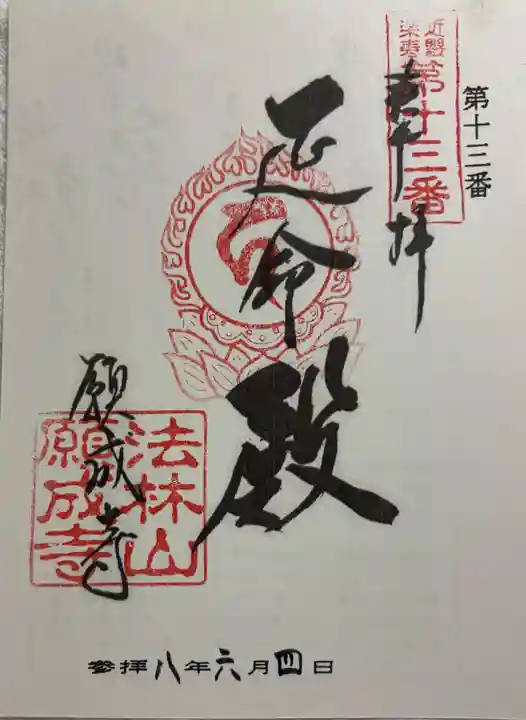 第十三番
第十三番
奉拝
延命殿
願成寺
法林山
願成寺
参拝八年六月四日